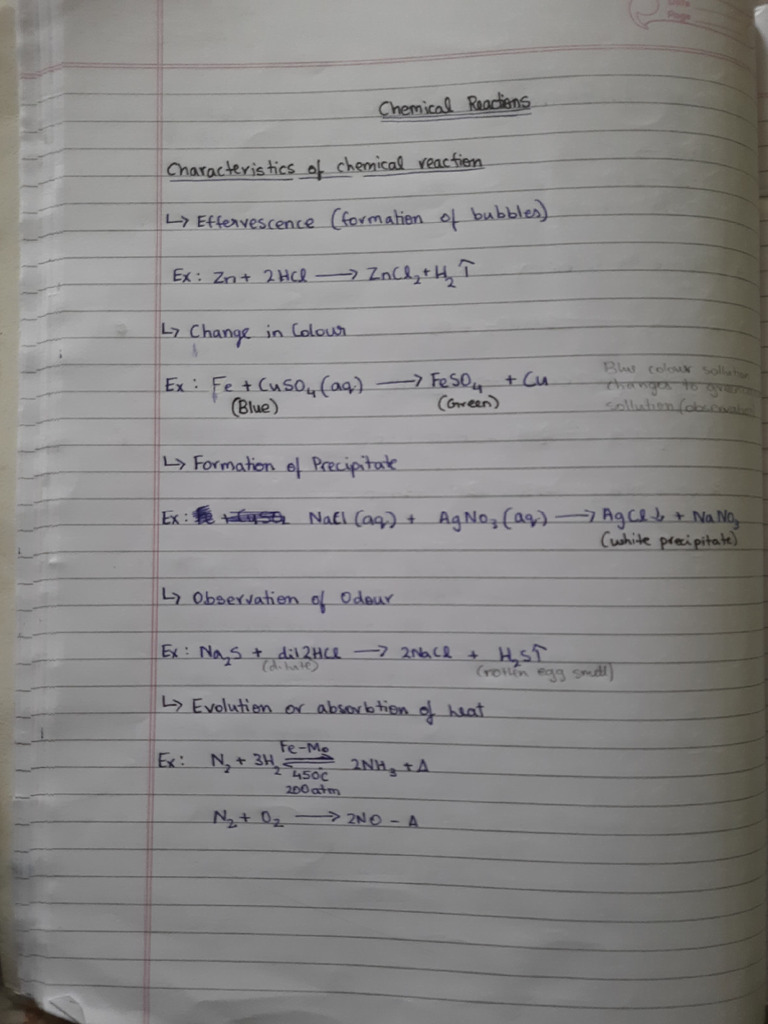 Date
Page
Chemical Reactions
Characteristics of chemical reaction
↳ Effervescence (formation of bubbles)
Ex: Zn + 2HCl ⟶ ZnCl₂ + H₂↑
↳ Change in Colour
Ex: Fe + CuSO₄ (aq) ⟶ FeSO₄ + Cu
(Blue) (Green)
Blue colour
changes to
↳ Formation of Precipitate
Ex: NaCl (aq) + AgNO₃ (aq) ⟶ AgCl↓ + NaNO₃
(white precipitate)
↳ Observation of Odour
Ex: Na₂S + dil 2HCl ⟶ 2NaCl + H₂S↑
(dilute) (rotten egg smell)
↳ Evolution or absorbtion of heat
Ex: N₂ + 3H₂ ⇌ 2NH₃ + Δ
Fe-Mo
450C
200atm
N₂ + O₂ ⟶ 2NO - Δ